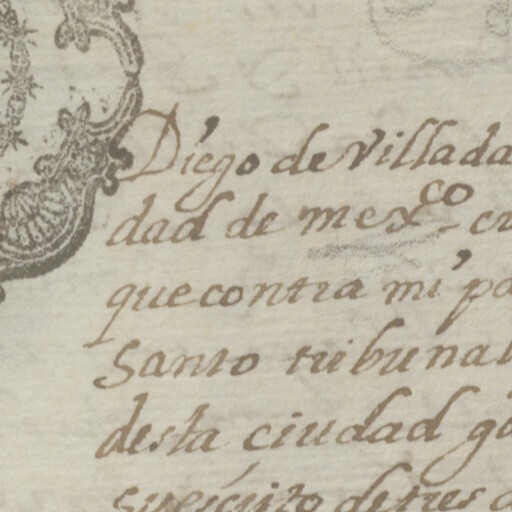 Diego de Villada
dad de mexco en
que contra mi pa
Santo tribunal
desta ciudad
su escrito de tres